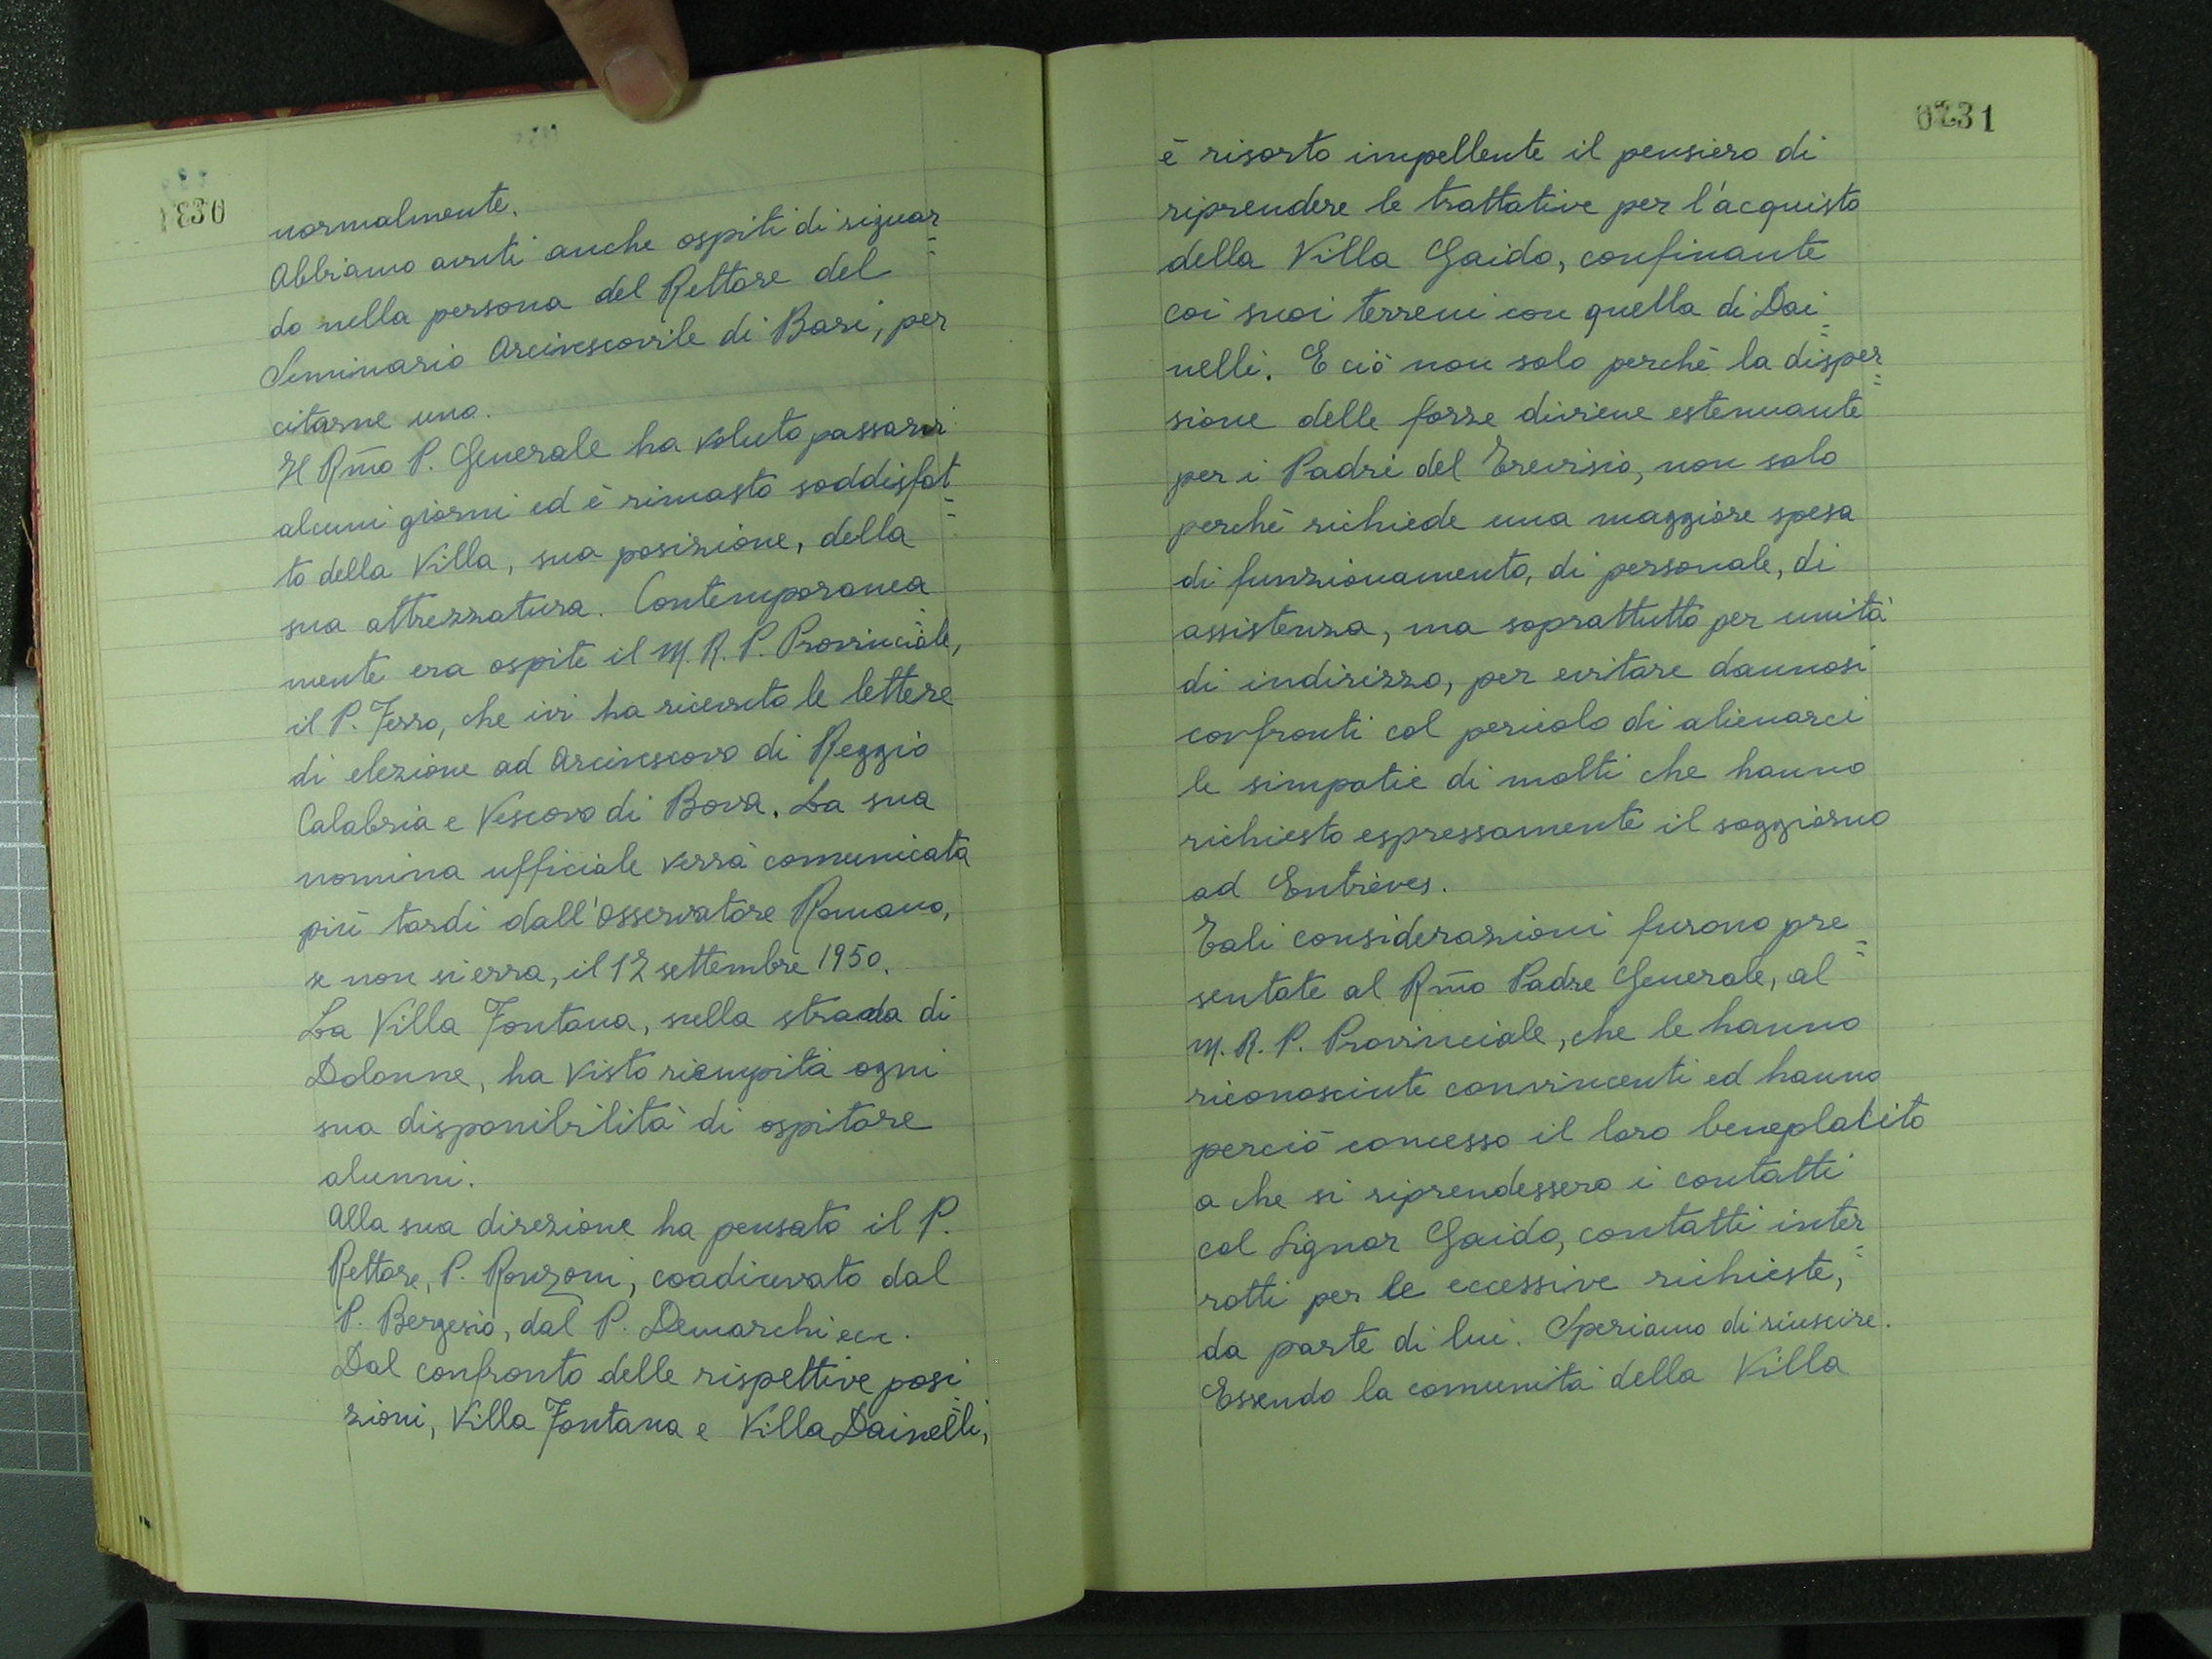 normalmente.
Abbiamo avuti anche ospiti di riguar=
do nella persona del Rettore del
Seminario Arcivescovile di Bari, per
citarne uno.
Il Rm̃o P. Generale ha voluto passarvi
alcuni giorni ed è rimasto soddisfat=
to della Villa, sua posizione, della
sua attrezzatura. Contemporanea
mente era ospite il M. R. P. Provinciale,
il P. Ferro, che ivi ha ricevuto le lettere
di elezione ad Arcivescovo di Reggio
Calabria e Vescovo di Bova. La sua
nomina ufficiale verrà comunicata
più tardi dall'Osservatore Romano,
se non si erra, il 12 settembre 1950.
La Villa Fontana, sulla strada di
Dolonne, ha visto riempita ogni
sua disponibilità di ospitare
alunni.
Alla sua direzione ha pensato il P.
Rettore, P. Ronzoni, coadiuvato dal
P. Bergesio, dal P. Demarchi ecc.
Dal confronto delle rispettive posi
zioni, Villa Fontana e Villa Dainelli,
0231
è risorto impellente il pensiero di
riprendere le trattative per l'acquisto
della Villa Gaido, confinante
coi suoi terreni con quella di Dai=
nelli. E ciò non solo perchè la disper=
sione delle forze diviene estenuante
per i Padri del Trevisio, non solo
perchè richiede una maggiore spesa
di funzionamento, di personale, di
assistenza, ma soprattutto per unità
di indirizzo, per evitare dannosi
confronti col pericolo di alienarci
le simpatie di molti che hanno
richiesto espressamente il soggiorno
ad Entrèves.
Tali considerazioni furono pre=
sentate al Rm̃o Padre Generale, al
M. R. P. Provinciale, che le hanno
riconosciute convincenti ed hanno
perciò concesso il loro beneplacito
a che si riprendessero i contatti
col Signor Gaido, contatti inter=
rotti per le eccessive richieste,
da parte di lui. Speriamo di riuscire.
Essendo la comunità della Villa